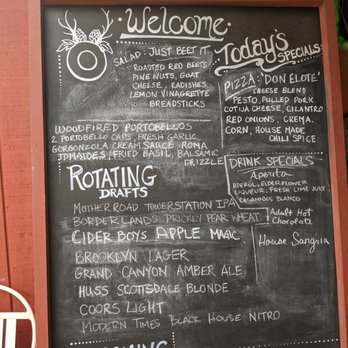 Welcome
SALAD: JUST BEET IT
ROASTED RED BEETS
PINE NUTS, GOAT
CHEESE, RADISHES
LEMON VINAGRETTE
BREADSTICKS
WOODFIRED PORTOBELLOS
2 PORTOBELLO CAPS, FRESH GARLIC
GORGONZOLA CREAM SAUCE ROMA
TOMATOES, FRIED BASIL, BALSAMIC
DRIZZLE
ROTATING
DRAFTS
MOTHER ROAD TOWERSTATION IPA
BORDERLANDS PRICKLY PEAR WHEAT
CIDER BOYS APPLE MAGIC
BROOKLYN LAGER
GRAND CANYON AMBER ALE
HUSS SCOTSDALE BLONDE
COORS LIGHT
MODERN TIMES BLACK HOUSE NITRO
Today's
SPECIALS
PIZZA: 'DON ELOTE'
CHEESE BLEND
PESTO, PULLED PORK
COTIJA CHEESE, CILANTRO
RED ONIONS, CREMA,
CORN, HOUSE MADE
CHILI SPICE
DRINK SPECIALS
APEROL, ELDERFLOWER
LIQUEUR, FRESH LIME JUICE
CASAMIGOS BLANCO
Adult Hot
Chocolate
House Sangria